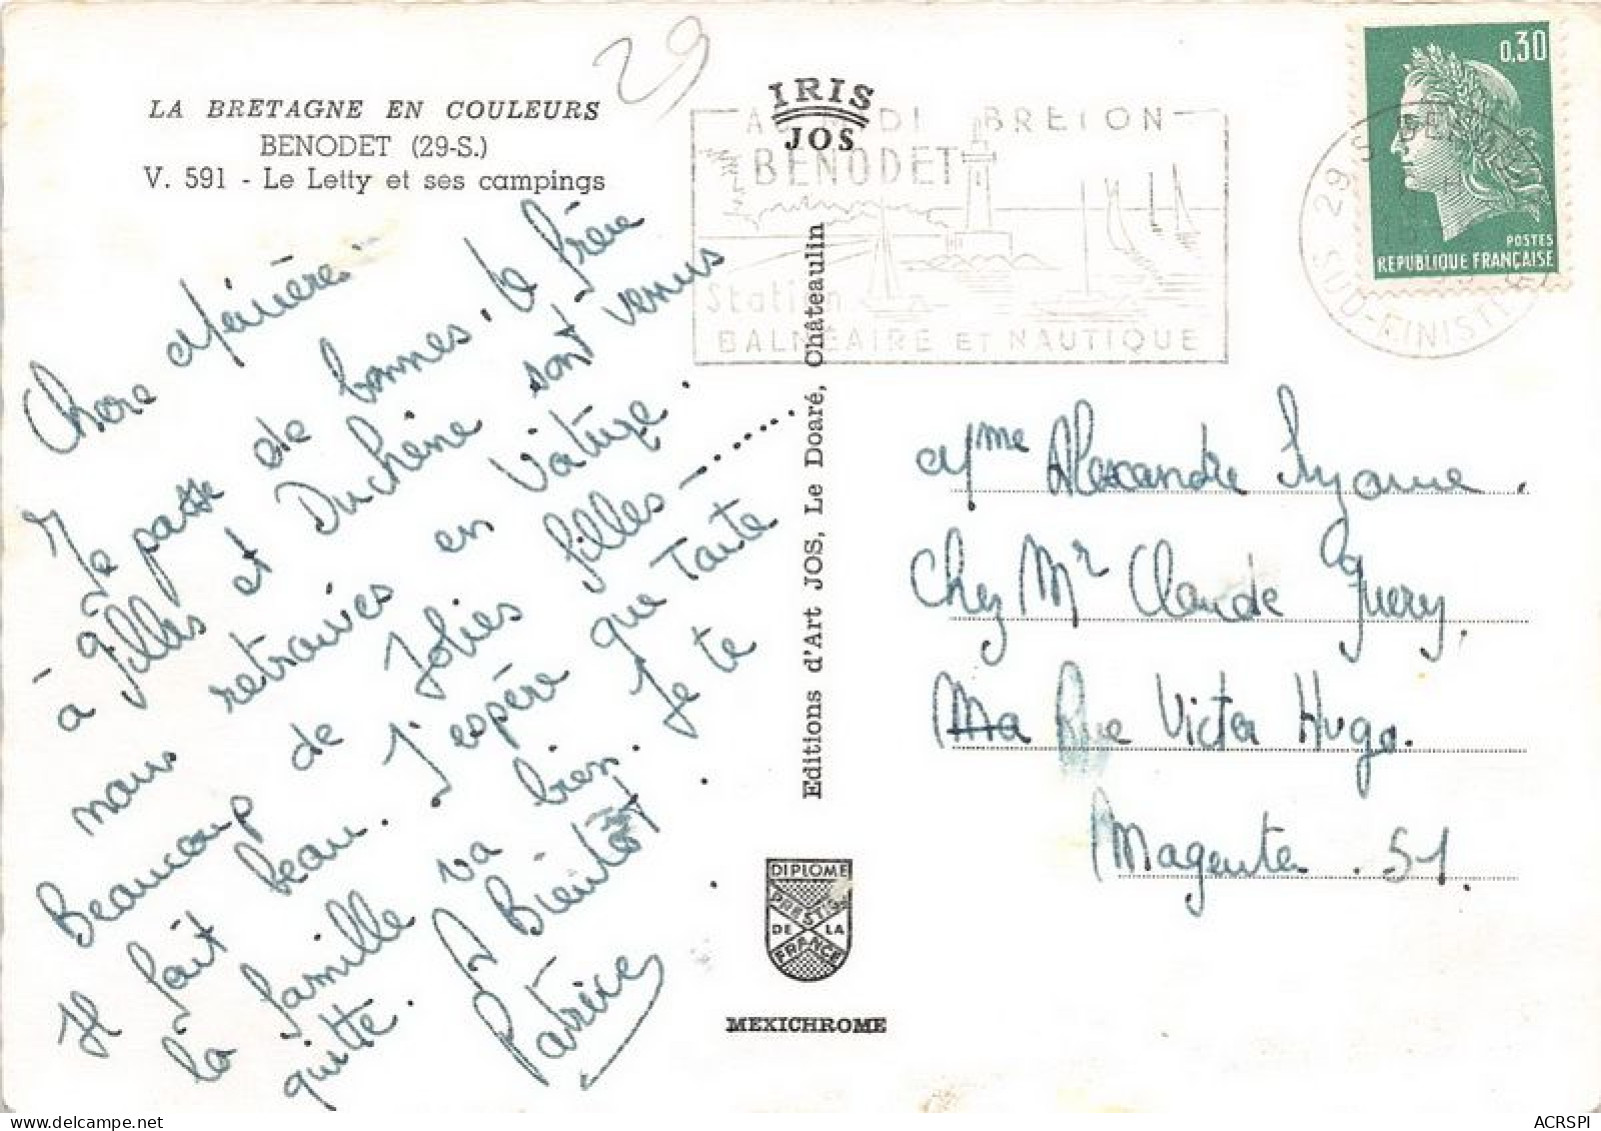 29
LA BRETAGNE EN COULEURS
BENODET (29-S.)
V. 591 - Le Letty et ses campings
IRIS
JOS
AU MIDI BRETON
BENODET
Station
BALNÉAIRE ET NAUTIQUE
29 S BENODET
SUD-FINISTERE
0,30
POSTES
REPUBLIQUE FRANÇAISE
Chere
Je passe de bonnes. Le frère
à Gilles et Duchêne sont venus
nous retrouvés en Voiture.
Beaucoup de Jolies filles -.....
Il fait beau. J'espère que Tante
la famille va bien. Je te
quitte. A Bientôt.
Patrice
Editions d'Art JOS, Le Doaré, Châteaulin
DIPLOME
PRESTIGE
DE LA
FRANCE
MEXICHROME
Mme Alexandre Suzanne.
Chez Mr Claude Guery,
Ma Rue Victor Hugo.
Magenta. 51.
ACRSPI